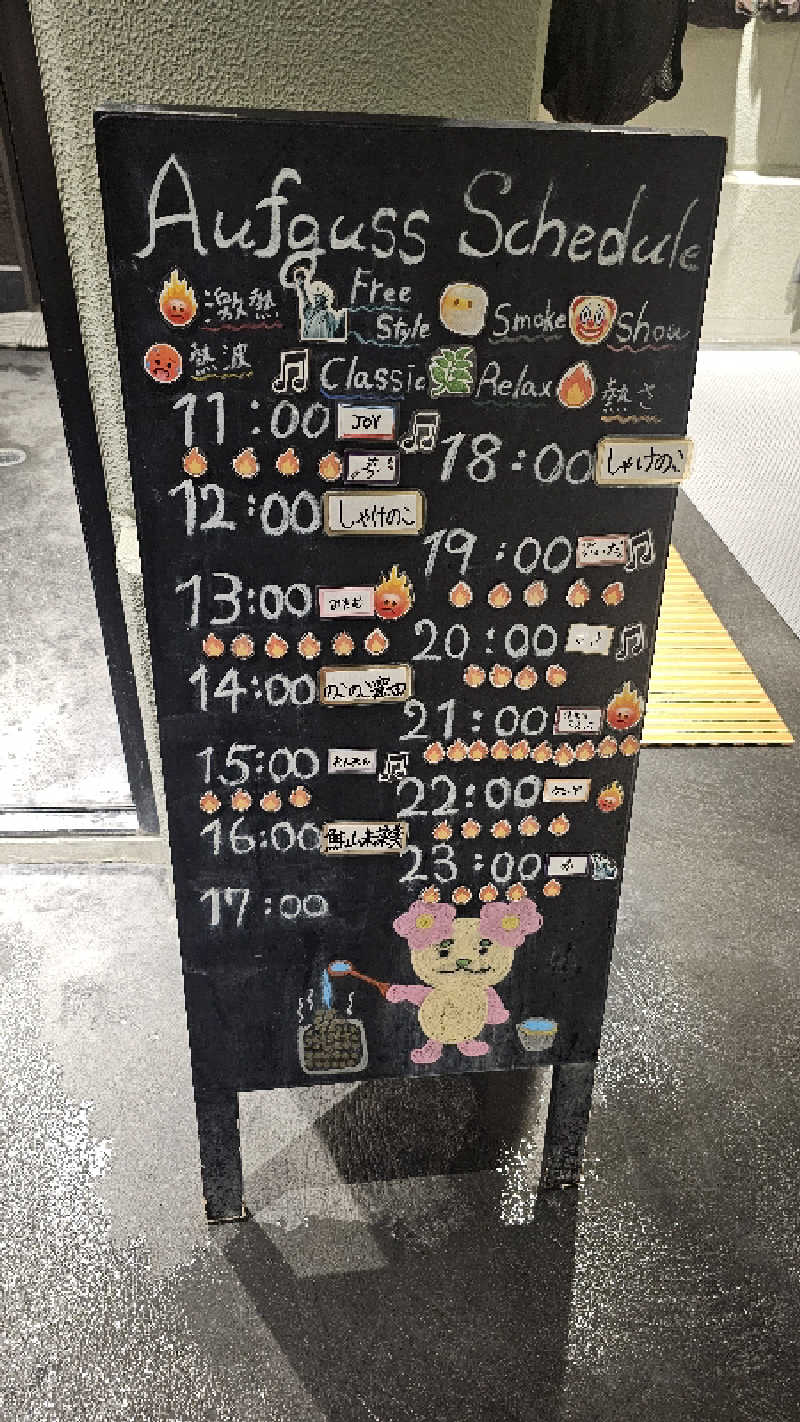 Aufguss Schedule
激熱 Free Style Smoke Show
熱波 Classic Relax 熱さ
11:00 JOY
12:00 しゃけのこ
13:00
14:00 のこのこ
15:00
16:00
17:00
18:00 しゃけのこ
19:00
20:00
21:00
22:00
23:00